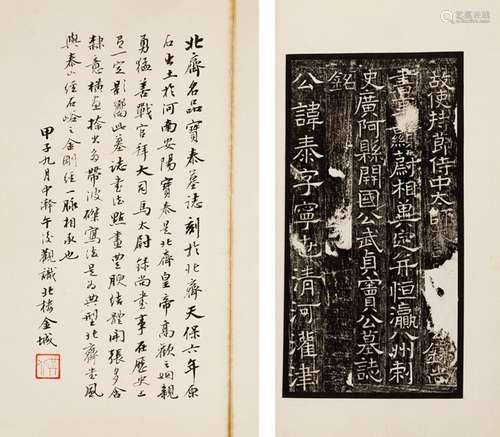 故使持節侍中太師錄尚
書事顯蔚相冀定并恒瀛八州刺
史廣阿縣開國公武貞竇公墓誌
銘
公諱泰字寧世清河灌津
北齊名品竇泰墓誌刻於北齊天保六年原
石出土於河南安陽竇泰是北齊皇帝高歡之姻親
勇猛善戰官拜大司馬太尉錄尚書事在歷史上
有一定影響此墓誌書法點畫豐腴結體開張多含
隸意橫畫捺出多帶波磔寫法是为典型北齊書風
與泰山經石峪之金剛經一脈相承也
甲子九月中澣午後觀識北楼金城